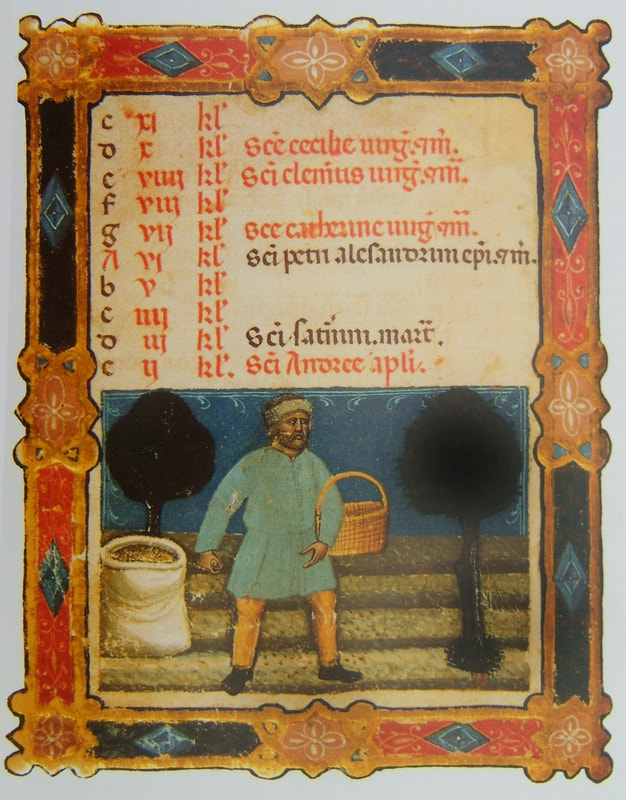 c xi kl'
d x kl' Scē cecilie uirg̃. ⁊ m̃.
e viiii kl' Sc̄i clem̃tis uirg̃. ⁊ m̃.
f viii kl'
g vii kl' Sce catherine uirg̃ ⁊ m̃.
A vi kl' Sc̄i petri alesandrini ep̄i ⁊ m̃.
b v kl'
c iiii kl'
d iii kl' Sc̄i mart̃.
e ii kl'. Sc̄i Andree apl̄i.